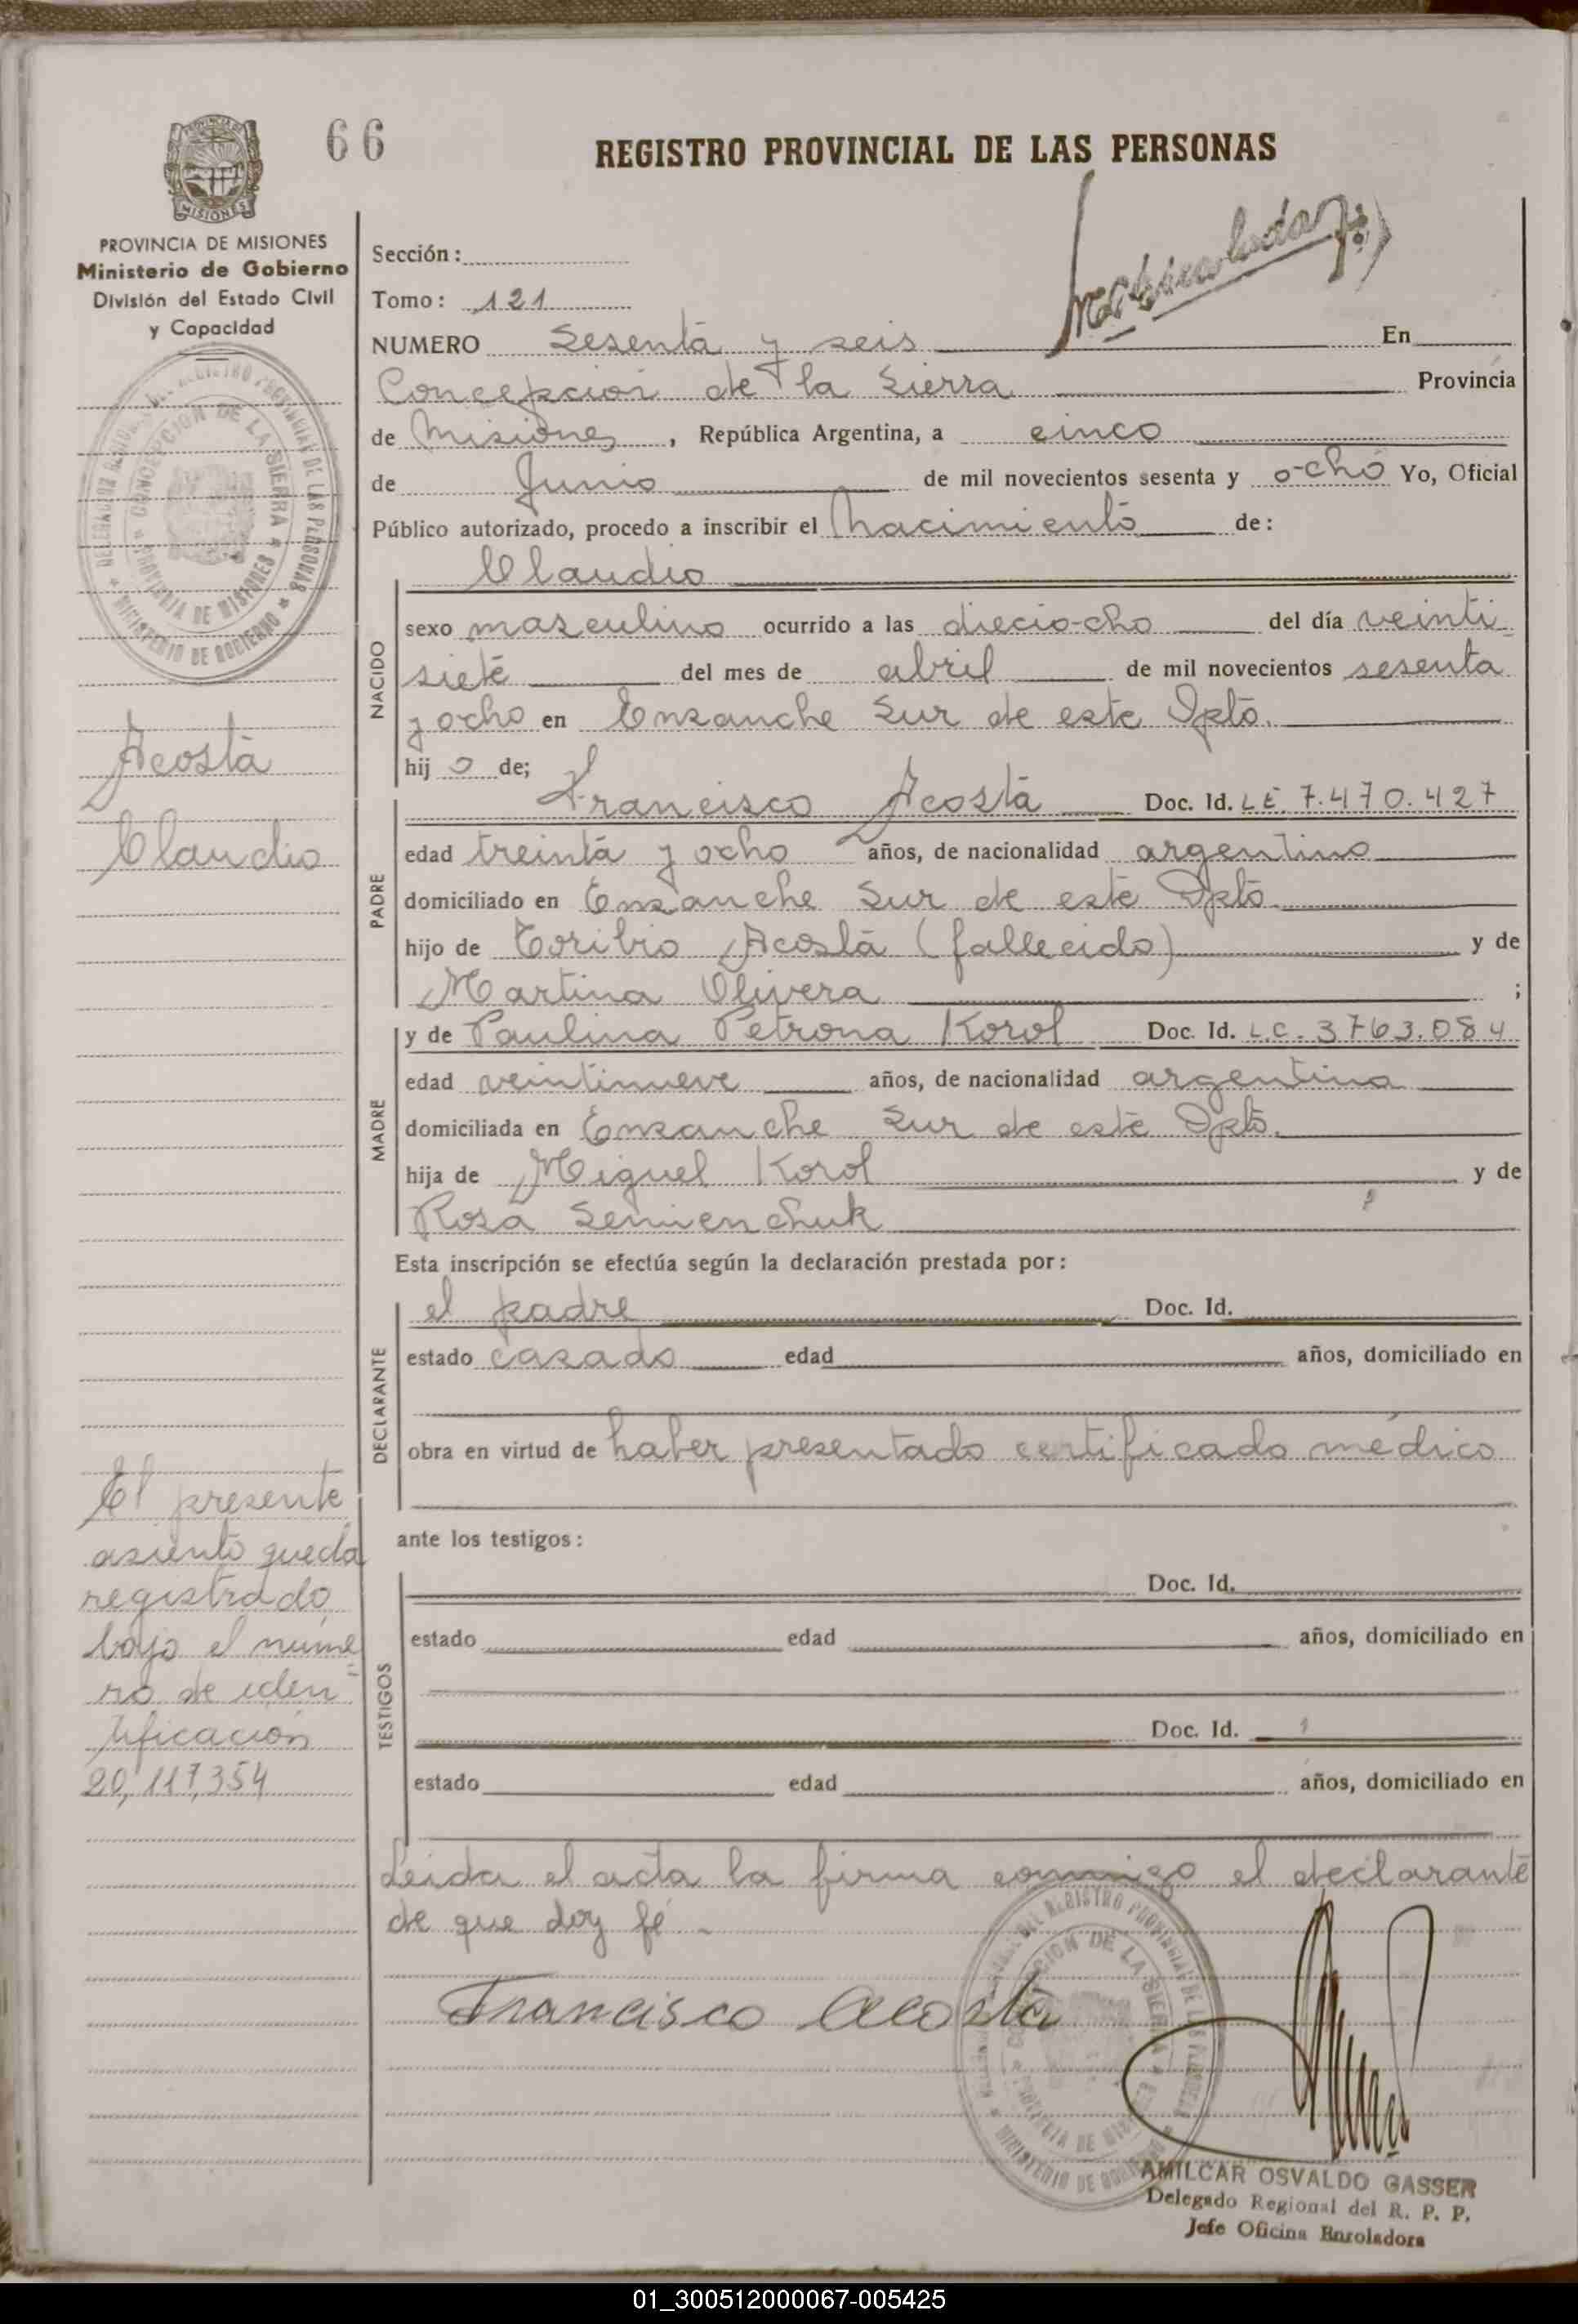 66
REGISTRO PROVINCIAL DE LAS PERSONAS
MISIONES
PROVINCIA DE MISIONES
Ministerio de Gobierno
División del Estado Civil
y Capacidad
Sección:
Tomo: 121
NUMERO Sesenta y seis En
Concepción de la Sierra Provincia
de Misiones, República Argentina, a cinco
de Junio de mil novecientos sesenta y ocho Yo, Oficial
Público autorizado, procedo a inscribir el nacimiento de:
Claudio
NACIDO
sexo masculino ocurrido a las dieciocho del día veinti
siete del mes de abril de mil novecientos sesenta
y ocho en Ensanche Sur de este Dpto.
hijo de;
Acosta
Claudio
PADRE
Francisco Acosta Doc. Id. L.E. 7.470.427
edad treinta y ocho años, de nacionalidad argentino
domiciliado en Ensanche Sur de este Dpto.
hijo de Toribio Acosta (fallecido) y de
Martina Olivera ;
MADRE
y de Paulina Petrona Korol Doc. Id. L.C. 3763.084
edad veintinueve años, de nacionalidad argentina
domiciliada en Ensanche Sur de este Dpto.
hija de Miguel Korol y de
Rosa Semenchuk
Esta inscripción se efectúa según la declaración prestada por:
DECLARANTE
el padre Doc. Id.
estado casado edad años, domiciliado en
obra en virtud de haber presentado certificado médico
ante los testigos:
TESTIGOS
Doc. Id.
estado edad años, domiciliado en
Doc. Id.
estado edad años, domiciliado en
El presente
asiento queda
registrado
bajo el núme
ro de iden
tificación
20,117,354
Leida el acta la firma conmigo el declarante
de que doy fé.
Francisco Acosta
CONCEPCION DE LA SIERRA
PROVINCIA DE MISIONES
MINISTERIO DE GOBIERNO
AMILCAR OSVALDO GASSER
Delegado Regional del R. P. P.
Jefe Oficina Enroladora
01_300512000067-005425